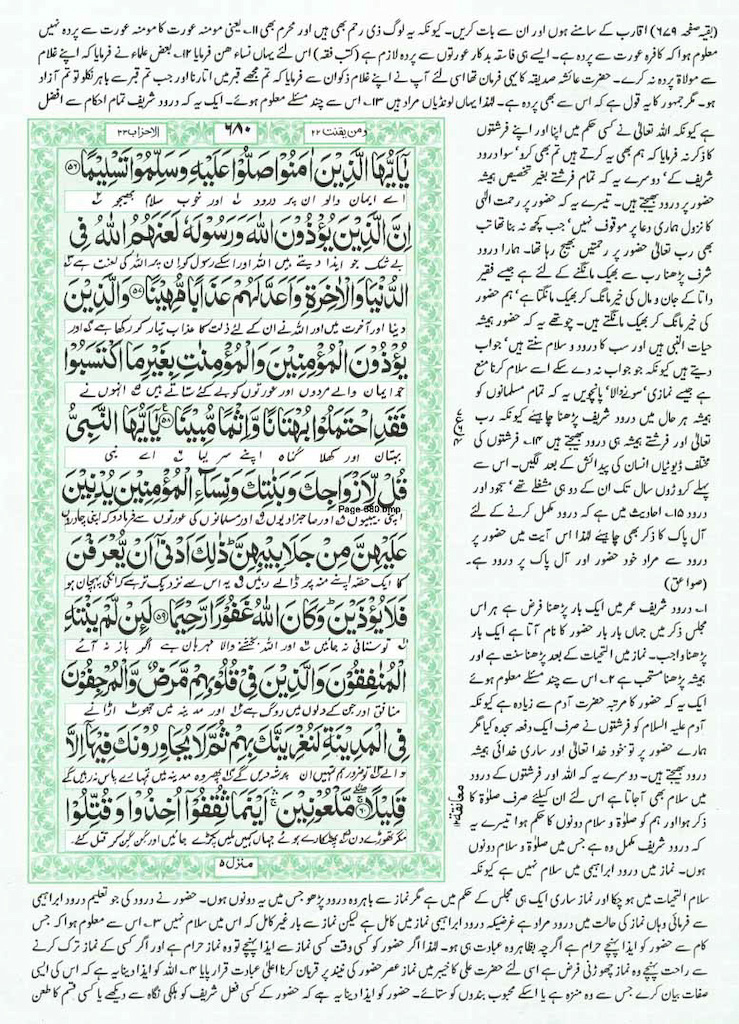 (بقیہ صفحہ ۶۷۹) اقارب کے سامنے ہوں اور ان سے بات کریں۔ کیونکہ یہ لوگ ذی رحم بھی ہیں اور محرم بھی ۱۱۔ یعنی مومنہ عورت کا مومنہ عورت سے پردہ نہیں
معلوم ہوا کہ کافرہ عورت سے پردہ ہے۔ ایسے ہی فاسقہ بدکار عورتوں سے پردہ لازم ہے (کتب فقہ) اس لئے یہاں نساء ھن فرمایا ۱۲۔ بعض علماء نے فرمایا کہ اپنے غلام
سے مولاۃ پردہ نہ کرے۔ حضرت عائشہ صدیقہ کا یہی فرمان تھا اسی لئے آپ نے اپنے غلام ذکوان سے فرمایا کہ تم مجھے قبر میں اتارنا اور جب تم قبر سے باہر نکلو تو تم آزاد
ہو۔ مگر جمہور کا یہ قول ہے کہ اس سے بھی پردہ ہے۔ لہٰذا یہاں لونڈیاں مراد ہیں ۱۳۔ اس سے چند مسئلے معلوم ہوئے۔ ایک یہ کہ درود شریف تمام احکام سے افضل
ہے کیونکہ اللہ تعالیٰ نے کسی حکم میں اپنا اور اپنے فرشتوں
کا ذکر نہ فرمایا کہ ہم بھی یہ کرتے ہیں تم بھی کرو' سوا درود
شریف کے' دوسرے یہ کہ تمام فرشتے بغیر تخصیص ہمیشہ
حضور پر درود بھیجتے ہیں۔ تیسرے یہ کہ حضور پر رحمت الٰہی
کا نزول ہماری دعا پر موقوف نہیں' جب کچھ نہ بنا تھا تب
بھی رب تعالیٰ حضور پر رحمتیں بھیج رہا تھا۔ ہمارا درود
شرف پڑھنا رب سے بھیک مانگنے کے لئے ہے جیسے فقیر
داتا کے جان و مال کی خیر مانگ کر بھیک مانگتا ہے' ہم حضور
کی خیر مانگ کر بھیک مانگتے ہیں۔ چوتھے یہ کہ حضور ہمیشہ
حیات النبی ہیں اور سب کا درود و سلام سنتے ہیں' جواب
دیتے ہیں کیونکہ جو جواب نہ دے سکے اسے سلام کرنا منع
ہے جیسے نمازی' سونے والا' پانچویں یہ کہ تمام مسلمانوں کو
ہمیشہ ہر حال میں درود شریف پڑھنا چاہیئے کیونکہ رب
تعالیٰ اور فرشتے ہمیشہ ہی درود بھیجتے ہیں ۱۴۔ فرشتوں کی
مختلف ڈیوٹیاں انسان کی پیدائش کے بعد لگیں۔ اس سے
پہلے کروڑوں سال تک ان کے دو ہی مشغلے تھے' سجود اور
درود ۱۵۔ احادیث میں ہے کہ درود مکمل کرنے کے لئے
آل پاک کا ذکر بھی چاہیئے لہٰذا اس آیت میں حضور کے
درود سے مراد خود حضور اور آل پاک پر درود ہے۔
(صواعق)
۱۔ درود شریف عمر میں ایک بار پڑھنا فرض ہے ہر اس
مجلس ذکر میں جہاں بار بار حضور کا نام آتا ہے ایک بار
پڑھنا واجب۔ نماز میں التحیات کے بعد پڑھنا سنت ہے اور
ہمیشہ پڑھنا مستحب ہے ۲۔ اس سے چند مسئلے معلوم ہوئے
ایک یہ کہ حضور کا مرتبہ حضرت آدم سے زیادہ ہے کیونکہ
آدم علیہ السلام کو فرشتوں نے صرف ایک دفعہ سجدہ کیا مگر
ہمارے حضور پر تو خود خدا تعالیٰ اور ساری خدائی ہمیشہ
درود بھیجتے ہیں۔ دوسرے یہ کہ اللہ اور فرشتوں کے درود
میں سلام بھی آجاتا ہے اس لئے ان کیلئے صرف صلوٰۃ کا
ذکر ہوا اور ہم کو صلوٰۃ و سلام دونوں کا حکم ہوا تیسرے یہ
کہ درود شریف مکمل وہ ہے جس میں صلوٰۃ و سلام دونوں
ہوں۔ نماز میں درود ابراہیمی میں سلام نہیں ہے کیونکہ
ومن یقنت ۲۲
۶۸۰
الاحزاب ۳۳
يٰۤاَيُّهَا الَّذِيْنَ اٰمَنُوْا صَلُّوْا عَلَيْهِ وَسَلِّمُوْا تَسْلِيْمًا ۝۵۶
اے ایمان والو ان پر درود اور خوب سلام بھیجو
اِنَّ الَّذِيْنَ يُؤْذُوْنَ اللّٰهَ وَرَسُوْلَهٗ لَعَنَهُمُ اللّٰهُ فِي
بے شک جو ایذا دیتے ہیں اللہ اور اسکے رسول کو ان پر اللہ کی لعنت ہے
الدُّنْيَا وَالْاٰخِرَةِ وَاَعَدَّ لَهُمْ عَذَابًا مُّهِيْنًا ۝۵۷ وَالَّذِيْنَ
دنیا اور آخرت میں اور اللہ نے ان کے لئے ذلت کا عذاب تیار کر رکھا ہے اور
يُؤْذُوْنَ الْمُؤْمِنِيْنَ وَالْمُؤْمِنٰتِ بِغَيْرِ مَا اكْتَسَبُوْا
جو ایمان والے مردوں اور عورتوں کو بے کئے ستاتے ہیں انہوں نے
فَقَدِ احْتَمَلُوْا بُهْتَانًا وَّاِثْمًا مُّبِيْنًا ۝۵۸ يٰۤاَيُّهَا النَّبِيُّ
بہتان اور کھلا گناہ اپنے سر لیا اے نبی
قُلْ لِّاَزْوَاجِكَ وَبَنٰتِكَ وَنِسَآءِ الْمُؤْمِنِيْنَ يُدْنِيْنَ
Page 680.bmp
اپنی بیبیوں اور صاحبزادیوں اور مسلمانوں کی عورتوں سے فرما دو کہ اپنی چادروں
عَلَيْهِنَّ مِنْ جَلَابِيْبِهِنَّ ذٰلِكَ اَدْنٰۤى اَنْ يُّعْرَفْنَ
کا ایک حصہ اپنے منہ پر ڈالے رہیں یہ اس سے نزدیک تر ہے کہ انکی پہچان ہو
فَلَا يُؤْذَيْنَ وَكَانَ اللّٰهُ غَفُوْرًا رَّحِيْمًا ۝۵۹ لَئِنْ لَّمْ يَنْتَهِ
تو ستائی نہ جائیں اور اللہ بخشنے والا مہربان ہے اگر باز نہ آئے
الْمُنٰفِقُوْنَ وَالَّذِيْنَ فِيْ قُلُوْبِهِمْ مَّرَضٌ وَّالْمُرْجِفُوْنَ
منافق اور جن کے دلوں میں روگ ہے اور مدینہ میں جھوٹ اڑانے
فِي الْمَدِيْنَةِ لَنُغْرِيَنَّكَ بِهِمْ ثُمَّ لَا يُجَاوِرُوْنَكَ فِيْهَاۤ اِلَّا
والے تو ضرور ہم تمہیں ان پر شہ دیں گے پھر وہ مدینہ میں تمہارے پاس نہ رہیں گے
قَلِيْلًا ۝۶۰ مَّلْعُوْنِيْنَ اَيْنَمَا ثُقِفُوْۤا اُخِذُوْا وَقُتِّلُوْا
مگر تھوڑے دن پھٹکارے ہوئے جہاں کہیں ملیں پکڑے جائیں اور گن گن کر قتل کئے
منزل ۵
سلام التحیات میں ہو چکا اور نماز ساری ایک ہی مجلس کے حکم میں ہے مگر نماز سے باہر وہ درود پڑھو جس میں یہ دونوں ہوں۔ حضور نے درود کی جو تعلیم درود ابراہیمی
سے فرمائی وہاں نماز کی حالت میں درود مراد ہے غرضیکہ درود ابراہیمی نماز میں کامل ہے لیکن نماز سے باہر غیر کامل کہ اس میں سلام نہیں ۳۔ اس سے معلوم ہوا کہ جس
کام سے حضور کو ایذا پہنچے حرام ہے اگرچہ بظاہر وہ عبادت ہی ہو۔ لہٰذا اگر حضور کو کسی وقت کسی نماز سے ایذا پہنچے تو وہ نماز حرام ہے اور اگر کسی کے نماز ترک کرنے
سے راحت پہنچے وہ نماز چھوڑنی فرض ہے اسی لئے حضرت علی کا خیبر میں نماز عصر حضور کی نیند پر قربان کرنا اعلیٰ عبادت قرار پایا ۴۔ اللہ کو ایذا دینا یہ ہے کہ اس کی ایسی
صفات بیان کرے جس سے وہ منزہ ہے یا اسکے محبوب بندوں کو ستائے۔ حضور کو ایذا دینا یہ ہے کہ حضور کے کسی فعل شریف کو ہلکی نگاہ سے دیکھے یا کسی قسم کا طعن